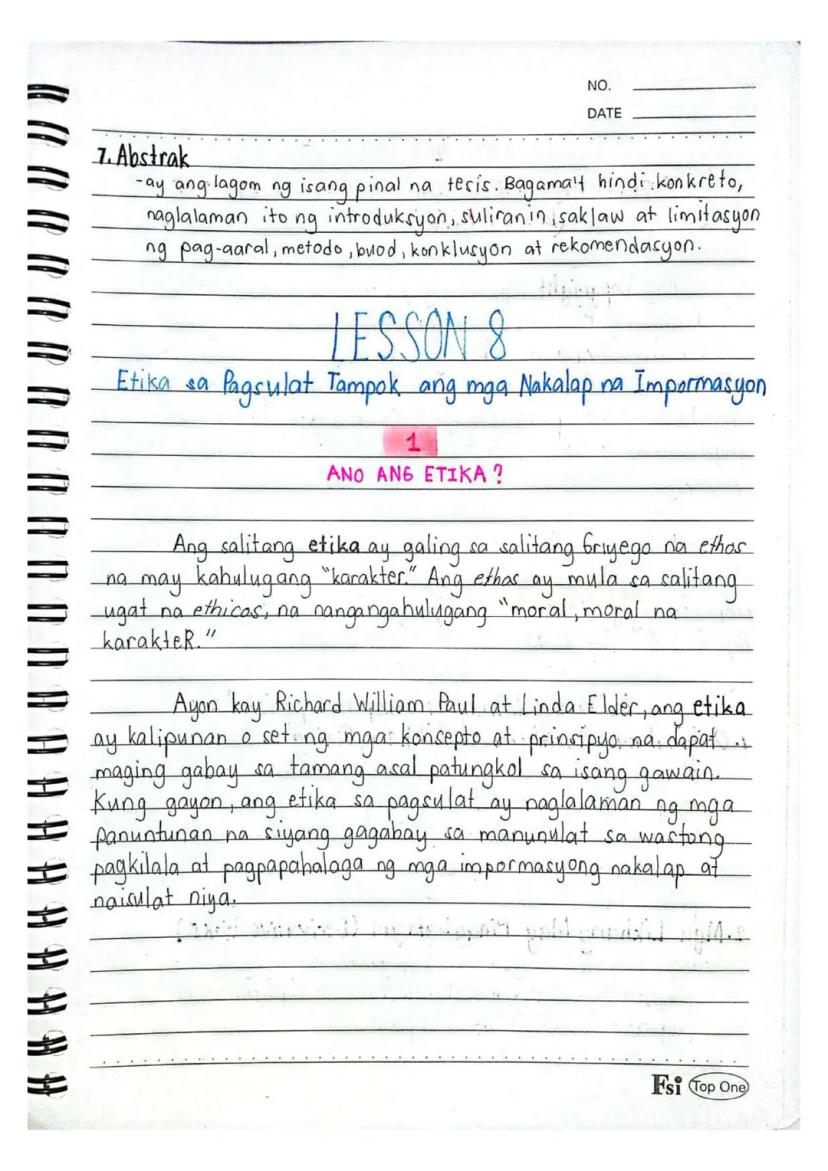 NO.
DATE
7. Abstrak
-ay ang lagom ng isang pinal na tesis. Bagama't hindi konkreto,
naglalaman ito ng introduksyon, suliranin, saklaw at limitasyon
ng pag-aaral, metodo, buod, konklusyon at rekomendasyon.
LESSON 8
Etika sa Pagsulat Tampok ang mga Nakalap na Impormasyon
1
ANO ANG ETIKA?
Ang salitang etika ay galing sa salitang Griyego na ethos
na may kahulugang "karakter." Ang ethos ay mula sa salitang
ugat na ethicos, na nangangahulugang "moral, moral na
karakteR."
Ayon kay Richard William Paul at Linda Elder, ang etika
ay kalipunan o set ng mga konsepto at prinsipyo na dapat
maging gabay sa tamang asal patungkol sa isang gawain.
Kung gayon, ang etika sa pagsulat ay naglalaman ng mga
panuntunan na siyang gagabay sa manunulat sa wastong
pagkilala at pagpapahalaga ng mga impormasyong nakalap at
naisulat niya.
Fsi Top One